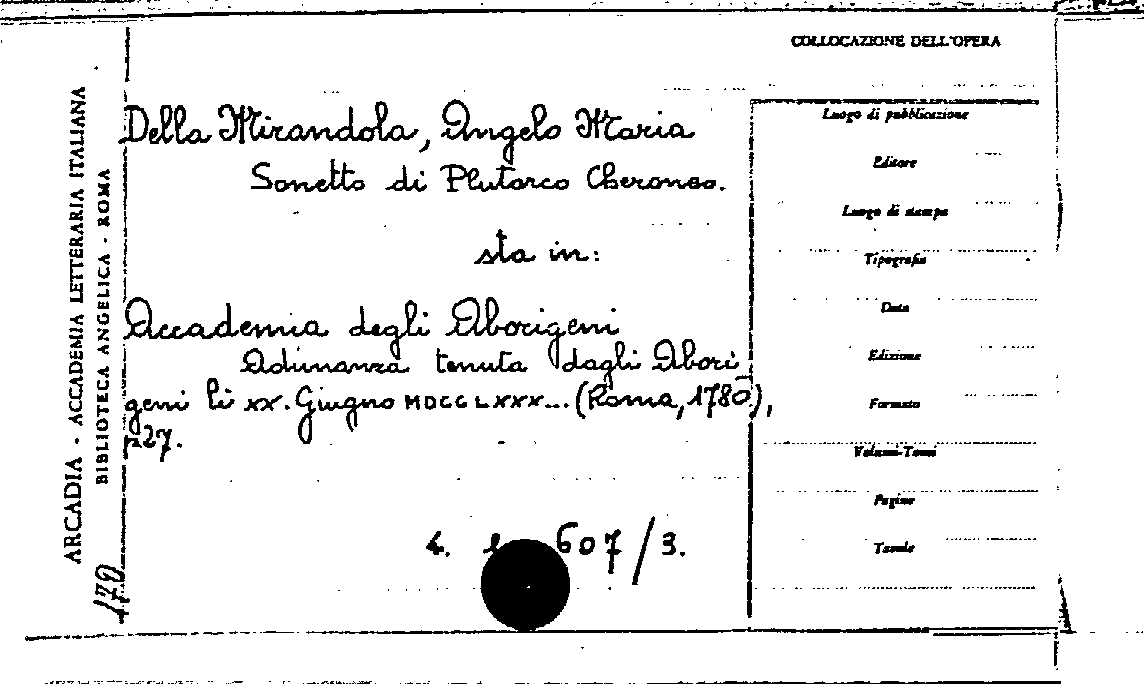 COLLOCAZIONE DELL'OPERA
ARCADIA - ACCADEMIA LETTERARIA ITALIANA
BIBLIOTECA ANGELICA - ROMA
170
Della Mirandola, Angelo Maria
Sonetto di Plutarco Cheroneo.
sta in:
Accademia degli Aborigeni
Adunanza tenuta dagli Abori
geni li XX. Giugno MDCCLXXX... (Roma, 1780),
p27.
4. 607/3.
Luogo di pubblicazione
Editore
Luogo di stampa
Tipografia
Data
Edizione
Formato
Volumi-Tomi
Pagine
Tavole